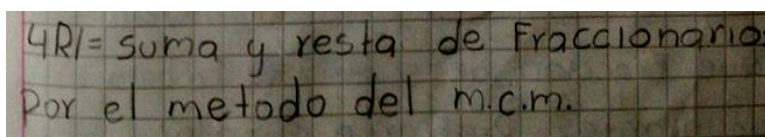 4R/= suma y resta de Fraccionario
Por el metodo del m.c.m.